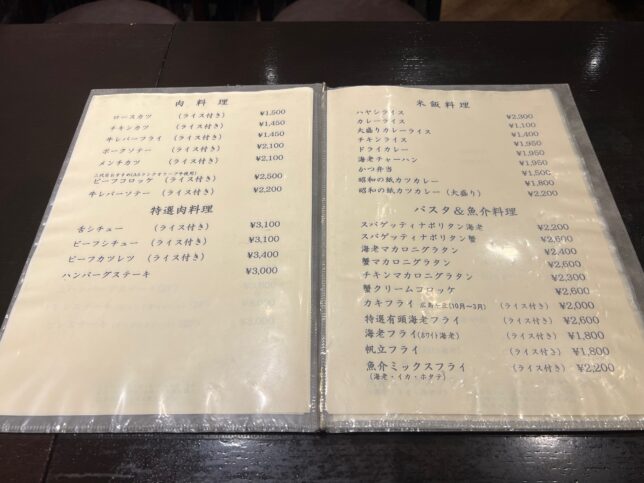 肉料理
ロースカツ (ライス付き) ¥1,500
チキンカツ (ライス付き) ¥1,450
牛レバーフライ (ライス付き) ¥1,450
ポークソテー (ライス付き) ¥2,100
メンチカツ (ライス付き) ¥2,100
ビーフコロッケ (ライス付き) ¥2,500
牛レバーソテー (ライス付き) ¥2,200
特選肉料理
舌シチュー (ライス付き) ¥3,100
ビーフシチュー (ライス付き) ¥3,100
ビーフカツレツ (ライス付き) ¥3,400
ハンバーグステーキ ¥3,000
米飯料理
ハヤシライス ¥2,300
カレーライス ¥1,100
大盛りカレーライス ¥1,400
チキンライス ¥1,950
ドライカレー ¥1,950
海老チャーハン ¥1,950
かつ弁当 ¥1,500
昭和の紙カツカレー ¥1,800
昭和の紙カツカレー (大盛り) ¥2,200
パスタ&魚介料理
スパゲッティナポリタン海老 ¥2,200
スパゲッティナポリタン蟹 ¥2,600
海老マカロニグラタン ¥2,400
蟹マカロニグラタン ¥2,600
チキンマカロニグラタン ¥2,300
蟹クリームコロッケ ¥2,600
カキフライ (10月~3月) (ライス付き) ¥2,000
特選有頭海老フライ (ライス付き) ¥2,600
海老フライ(ホワイト海老) (ライス付き) ¥1,800
帆立フライ (ライス付き) ¥1,800
魚介ミックスフライ (ライス付き) ¥2,200
(海老・イカ・ホタテ)